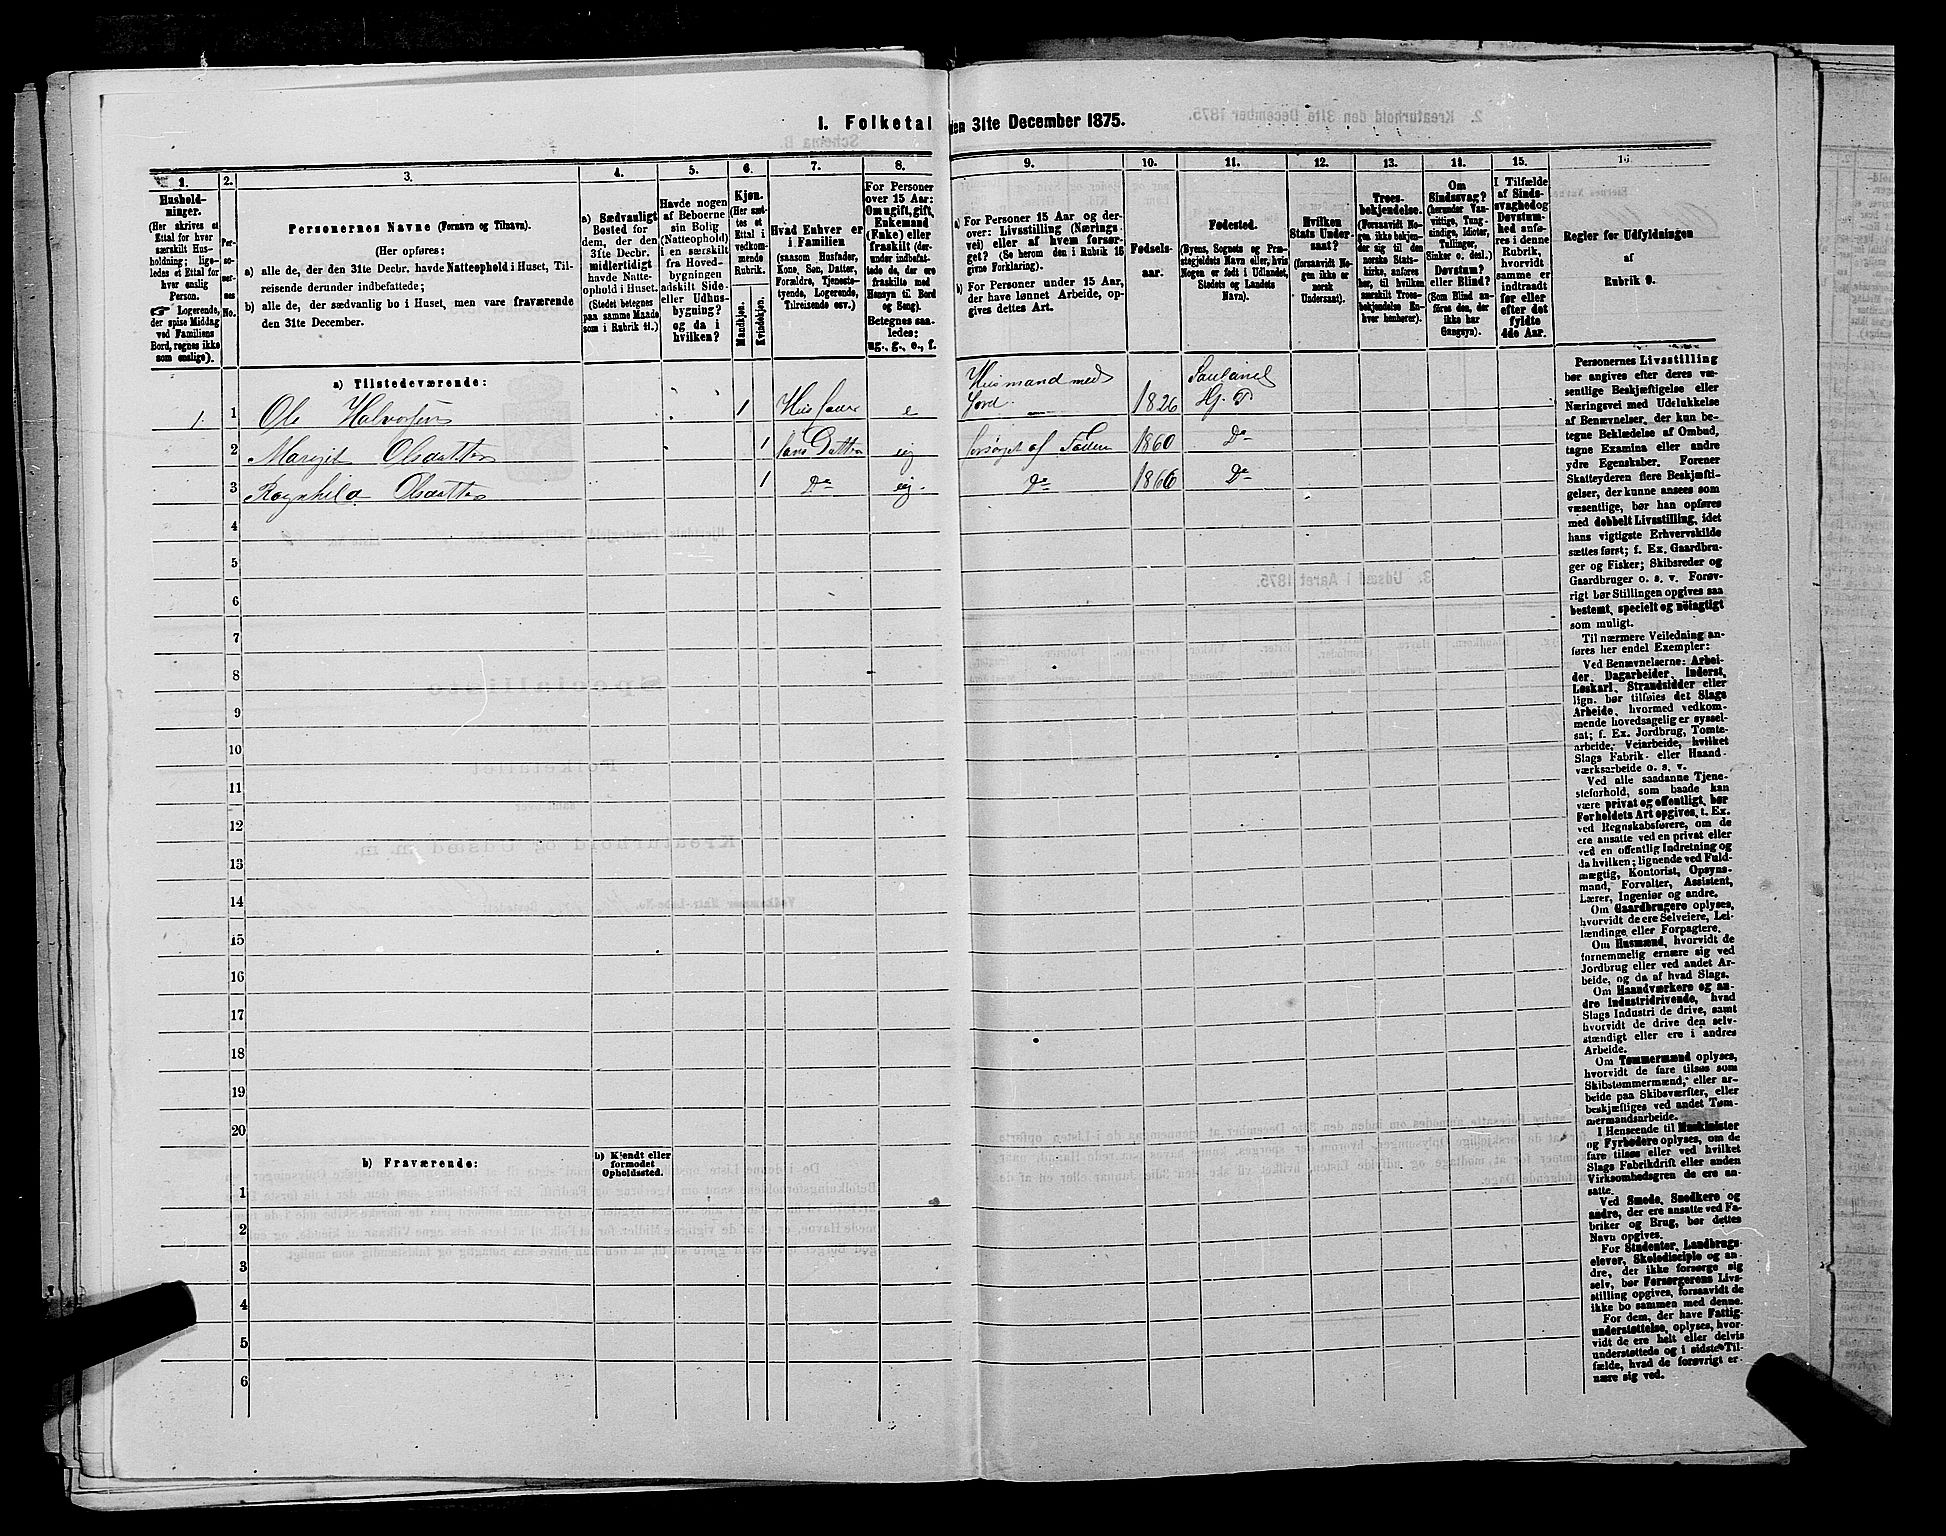 1. Folketal den 31te December 1875.
1.
Hushold-
ninger.
(Her skrives et
Ettal for hver
særskilt Hus-
holdning; lige-
ledes et Ettal for
hver enslig
Person.
Logerende,
der spise Middag
ved Familiens
Bord, regnes ikke
som enslige).
2.
Per-
soner-
nes
No.
3.
Personernes Navne (Fornavn og Tilnavn).
(Her opføres:
a) alle de, der den 31te Decbr. havde Natteophold i Huset, Til-
reisende derunder indbefattede;
b) alle de, der sædvanlig bo i Huset, men vare fraværende
den 31te December.
4.
a) Sædvanligt
Bosted for
dem, der den
31te Decbr.
midlertidigt
havde Natte-
ophold i Huset.
(Stedet betegnes
paa samme Maade
som i Rubrik 11.)
5.
Havde nogen
af Beboerne
sin Bolig
(Natteophold)
i en særskilt
fra Hoved-
bygningen
adskilt Side-
eller Udhus-
bygning?
og da i
hvilken?
6.
Kjøn.
(Her sæt-
tes et
Ettal i
vedkom-
mende
Rubrik.
Mandkjøn.
Kvindekjøn.
7.
Hvad Enhver er
i Familien
(saasom Husfader,
Kone, Søn, Datter,
Forældre, Tjeneste-
tyende, Logerende,
Tilreisende osv.)
8.
For Personer
over 15 Aar:
Om ugift, gift,
Enkemand
(Enke) eller
fraskilt (der-
under indbefat-
tede de, der ere
fraskilte med
Hensyn til Bord
og Seng).
Betegnes saa-
ledes:
ug., g., e., f.
9.
a) For Personer 15 Aar og der-
over: Livsstilling (Nærings-
vei) eller af hvem forsør-
get? (Se herom den i Rubrik 16
givne Forklaring).
b) For Personer under 15 Aar,
der have lønnet Arbeide, op-
gives dettes Art.
10.
Fødsels-
aar.
11.
Fødested.
(Byens, Sognets og Præ-
stegjeldets Navn eller, hvis
Nogen er født i Udlandet,
Stedets og Landets
Navn).
12.
Hvilken
Stats Under-
saat?
(forsaavidt No-
gen ikke er
norsk
Undersaat).
13.
Troes-
bekjendelse.
(Forsaavidt No-
gen ikke bekjen-
der sig til den
norske Stats-
kirke, anføres
her, til hvilken
særskilt Troes-
bekjendelse En-
hver henhører).
14.
Om
Sindssvag?
(herunder Van-
vittige, Tung-
sindige, Idioter,
Tullinger,
Sinker o. desl.)
Døvstum?
eller Blind?
(Som Blind an-
føres den, der
ikke har
Gangsyn).
15.
I Tilfælde
af Sinds-
svaghed og
Døvstum-
hed anfø-
res i denne
Rubrik,
hvorvidt
samme er
indtraadt
før eller
efter det
fyldte
4de Aar.
16
Regler for Udfyldningen
af
Rubrik 9.
a) Tilstedeværende:
1. 1 Ole Halvorsen 1 Husfader e Husmand med Jord. 1826 Sauland Hj. P
2 Margit Olsdatter 1 hans Datter ug forsørget af Faderen 1860 Do
3 Ragnhild Olsdatter 1 Do ug. Do 1866 Do
4
5
6
7
8
9
10
11
12
13
14
15
16
17
18
19
20
b) Fraværende:
b) Kjendt eller
formodet
Opholdssted.
1
2
3
4
5
6
Personernes Livsstilling
bør angives efter deres væ-
sentlige Beskjæftigelse eller
Næringsvei med Udelukkelse
af Benævnelser, der kun be-
tegne Beklædelse af Ombud,
tagne Examina eller andre
ydre Egenskaber. Forener
Skatteyderen flere Beskjæfti-
gelser, der kunne ansees som
væsentlige, bør han opføres
med dobbelt Livsstilling, idet
hans vigtigste Erhvervskilde
sættes først; f. Ex. Gaardbru-
ger og Fisker; Skibsreder og
Gaardbruger o. s. v. Forøv-
rigt bør Stillingen opgives saa
bestemt, specielt og nöiagtigt
som muligt.
Til nærmere Veiledning an-
føres her endel Exempler:
Ved Benævnelserne: Arbei-
der, Dagarbeider, Inderst,
Løskarl, Strandsidder eller
lign. bør tilføies det Slags
Arbeide, hvormed vedkom-
mende hovedsagelig er syssel-
sat; f. Ex. Jordbrug, Tomte-
arbeide, Veiarbeide, hvilket
Slags Fabrik- eller Haand-
værksarbeide o. s. v.
Ved alle saadanne Tjene-
steforhold, som baade kan
være privat og offentligt, bør
Forholdets Art opgives, t. Ex.
ved Regnskabsførere, om de
ere ansatte ved en privat eller
ved en offentlig Indretning og
da hvilken; lignende ved Fuld-
mægtig, Kontorist, Opsyns-
mand, Forvalter, Assistent,
Lærer, Ingeniør og andre.
Om Gaardbrugere oplyses,
hvorvidt de ere Selveiere, Lei-
lændinge eller Forpagtere.
Om Husmænd, hvorvidt de
fornemmelig ernære sig ved
Jordbrug eller ved andet Ar-
beide, og da af hvad Slags.
Om Haandværkere og an-
dre Industridrivende, hvad
Slags Industri de drive, samt
hvorvidt de drive den selv-
stændigt eller ere i andres
Arbeide.
Om Tømmermænd oplyses,
hvorvidt de fare tilsøs som
Skibstømmermænd, eller ar-
beide paa Skibsværfter, eller
beskjæftiges ved andet Tøm-
mermandsarbeide.
I Henseende til Maskinister
og Fyrbødere oplyses, om de
fare tilsøs eller ved hvilket
Slags Fabrikdrift eller anden
Virksomhedsgren de ere an-
satte.
Ved Smede, Snedkere og
andre, der ere ansatte ved Fa-
briker og Brug, bør dettes
Navn opgives.
For Studenter, Landbrugs-
elever, Skoledisciple og an-
dre, der ikke forsørge sig
selv, bør Forsørgerens Livs-
stilling opgives, forsaavidt de
ikke bo sammen med denne.
For dem, der have Fattig-
understøttelse, oplyses, hvor-
vidt de ere helt eller delvis
understøttede og i sidste Til-
fælde, hvad de forøvrigt er-
nære sig ved.